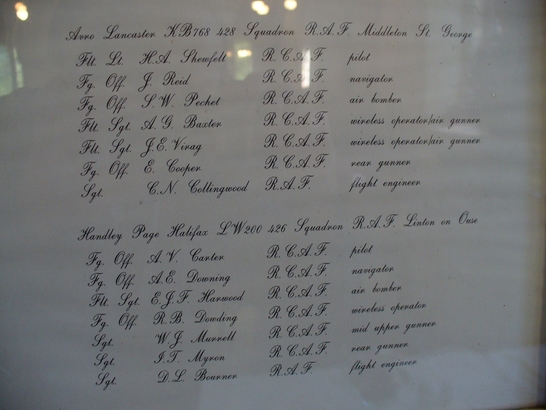 Avro Lancaster KB768 428 Squadron R.A.F Middleton St. George
Flt. Lt. H.A. Shewfelt R.C.A.F. pilot
Fg. Off. J. Reid R.C.A.F. navigator
Fg. Off. S.W. Pechet R.C.A.F. air bomber
Flt. Sgt. A.G. Baxter R.C.A.F. wireless operator/air gunner
Flt. Sgt. J.E. Virag R.C.A.F. wireless operator/air gunner
Fg. Off. E. Cooper R.C.A.F. rear gunner
Sgt. C.N. Collingwood R.A.F. flight engineer
Handley Page Halifax LW200 426 Squadron R.A.F. Linton on Ouse
Fg. Off. A.V. Carter R.C.A.F. pilot
Fg. Off. A.E. Downing R.C.A.F. navigator
Flt. Sgt. E.J.F. Harwood R.C.A.F. air bomber
Fg. Off. R.B. Dowding R.C.A.F. wireless operator
Sgt. W.J. Murrell R.C.A.F. mid upper gunner
Sgt. I.T. Myron R.C.A.F. rear gunner
Sgt. D.L. Bourner R.A.F. flight engineer